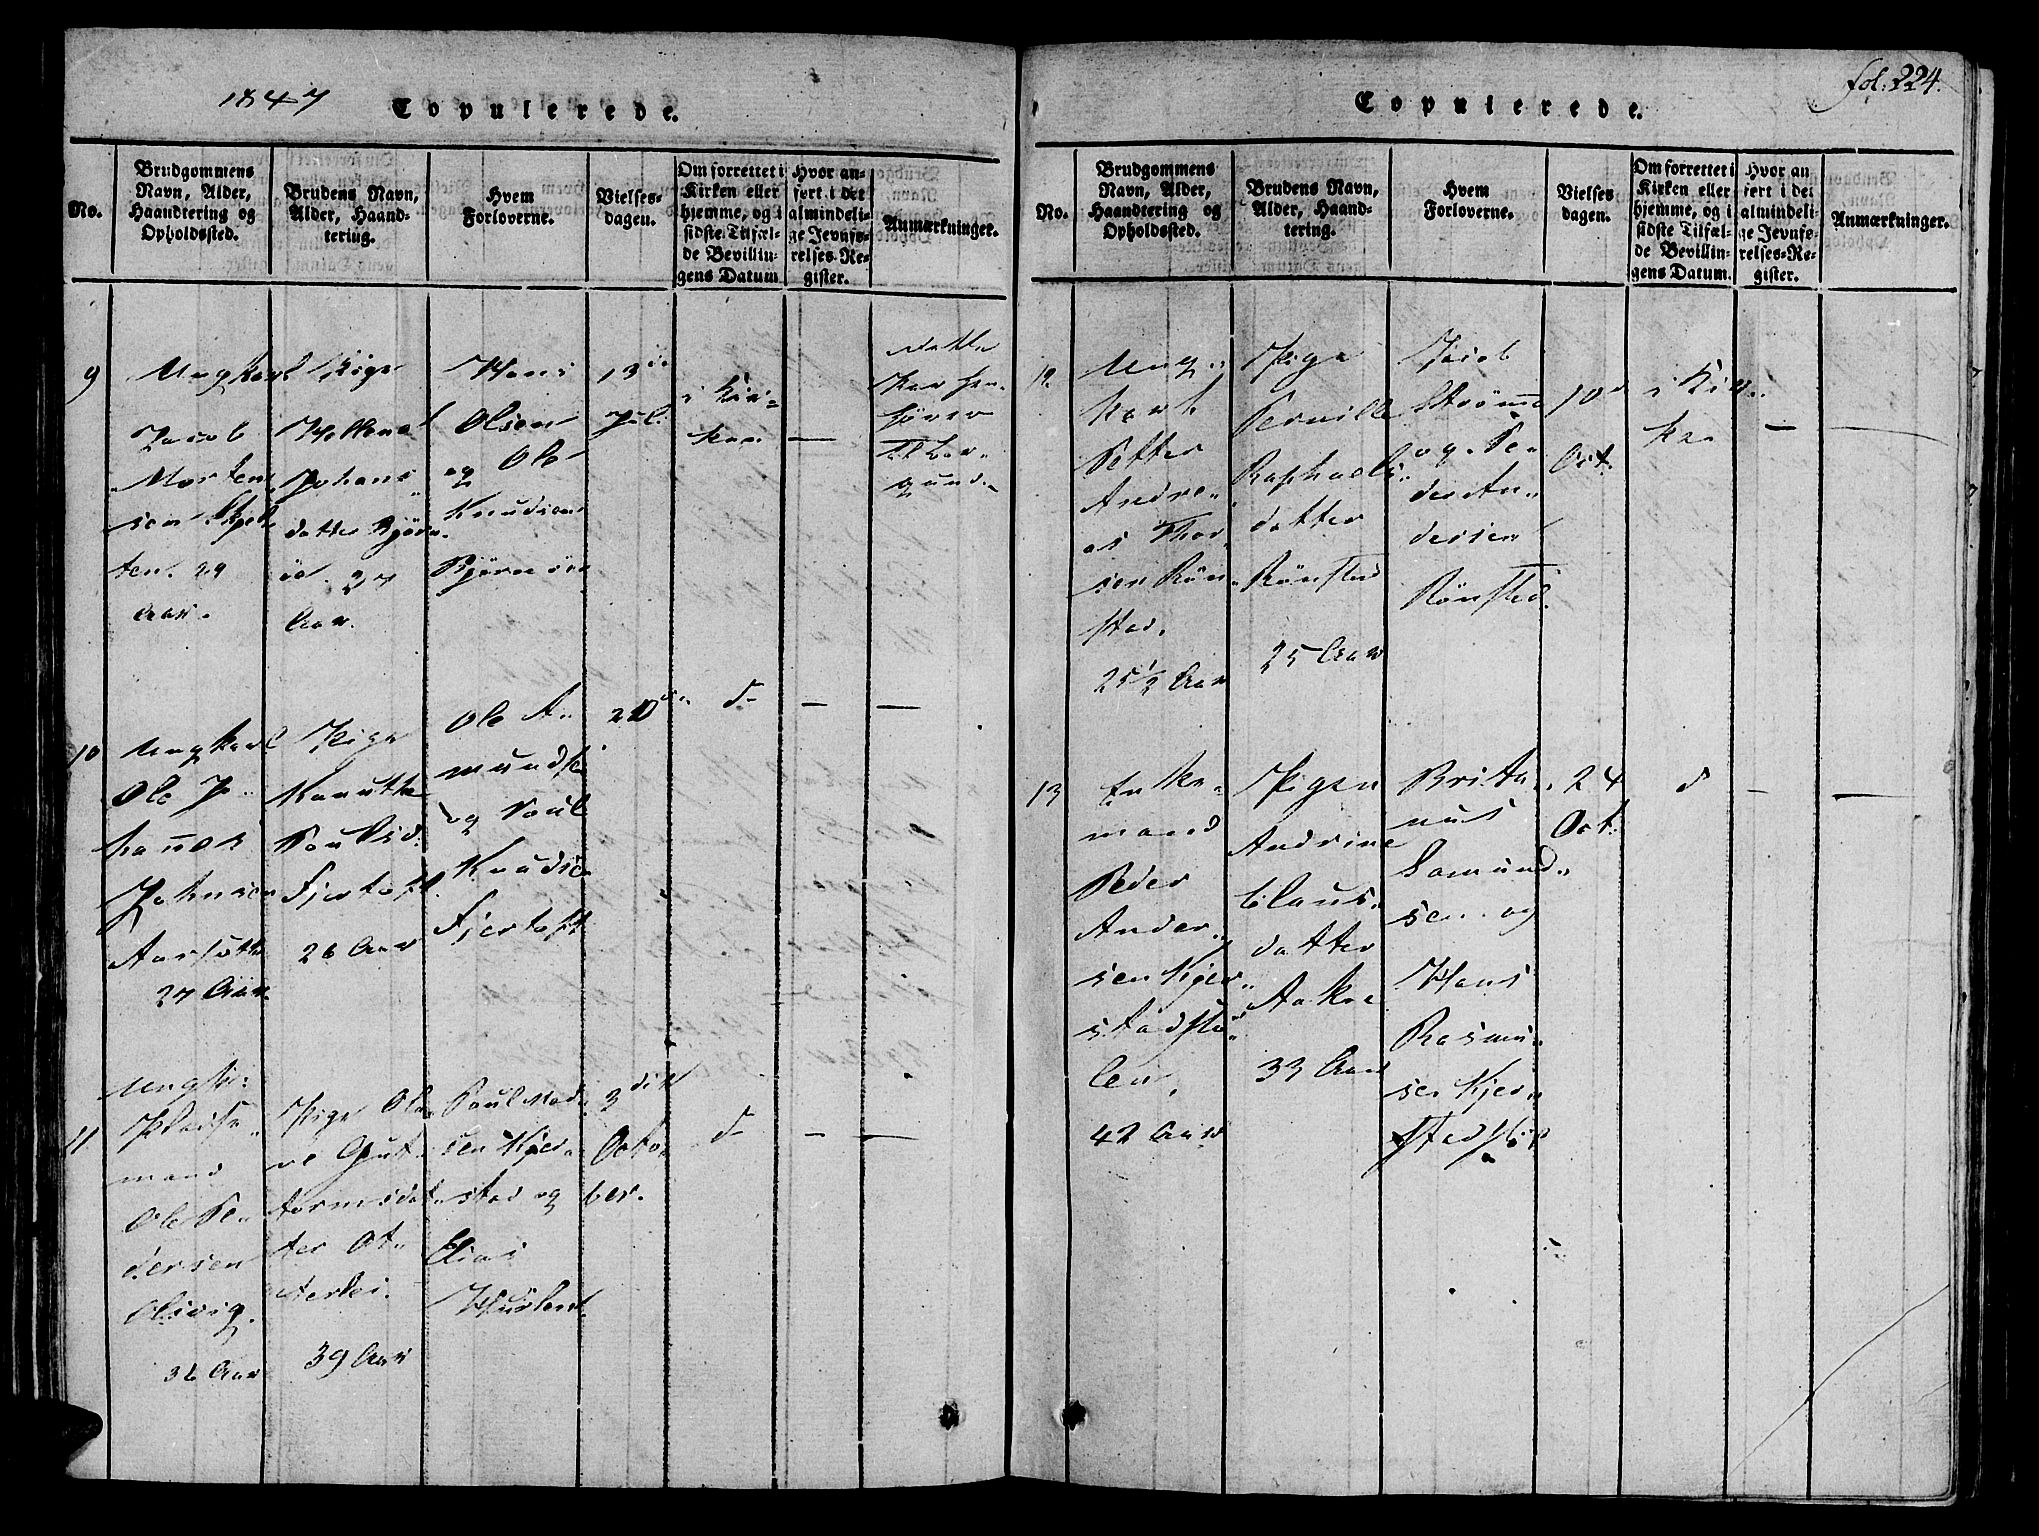 1847
Copulerede.
No.
Brudgommens
Navn, Alder,
Haandtering og
Opholdssted.
Brudens Navn,
Alder, Haand-
tering.
Hvem
Forloverne.
Vielses-
dagen.
Om forrettet i
Kirken eller
hjemme, og i
sidste Tilfæl-
de Bevillin-
gens Datum
Hvor an-
ført i det
almindeli-
ge Jevnfø-
relses-Re-
gister.
Anmærkninger.
9
Ungkarl
Jacob
Morten-
sen
ten. 29
Aar.
Pige
Johans-
datter Bjørn-
öe. 27
Aar.
Hans
Olsen
og Ole
Knudsen
Bjørnöen
13de
Jul.
i Kir-
ken
—
10
Ungkarl
Ole J-
hannes
Johnsen
27 Aar.
Pige
Kanutha
Poulsd.
Fjertoft
26 Aar
Ole A-
mundse
og Poul
Knudse
Fjertoft
d-
—
—
11.
Ungk:
Pladsm-
mand
Ole Pe-
dersen
Olsvig.
36 Aar
Pige Ola-
ve Gut-
tormsdat-
ter Ot-
terlei.
39 Aar
Poul Mad-
sen Kjer-
stad og
Elias
3die
Octo-
ber.
d-
—
—
fol: 224.
Copulerede.
No.
Brudgommens
Navn, Alder,
Haandtering og
Opholdssted.
Brudens Navn,
Alder, Haand-
tering.
Hvem
Forloverne.
Vielses
dagen.
Om forrettet i
Kirken eller
hjemme, og i
sidste Tilfæl-
de Bevillin-
gens Datum.
Hvor an
ført i det
almindeli-
ge Jevnfø-
relses-Re-
gister.
Anmærkninger.
12.
Ung-
karl
Petter
Andre-
as Thor-
sen Rön-
stad.
25 1/2 Aar
Pige
Pernille
Raphaels-
datter
Rönsted
25 Aar
Jacob
Strömme
og Pe-
der An-
dersen
Rönsted.
10de
Oct.
i Kir-
ken
—
—
13
Enke-
mand
Peder
Ander-
sen Kjer-
stadslö-
len,
42 Aar
Pigen
Andrine
Claus-
datter
Aakre
33 Aar
Brita-
nus
Samund-
sen og
Hans
Rasmu-
sen Kjer-
24
Oct.
d
—
—